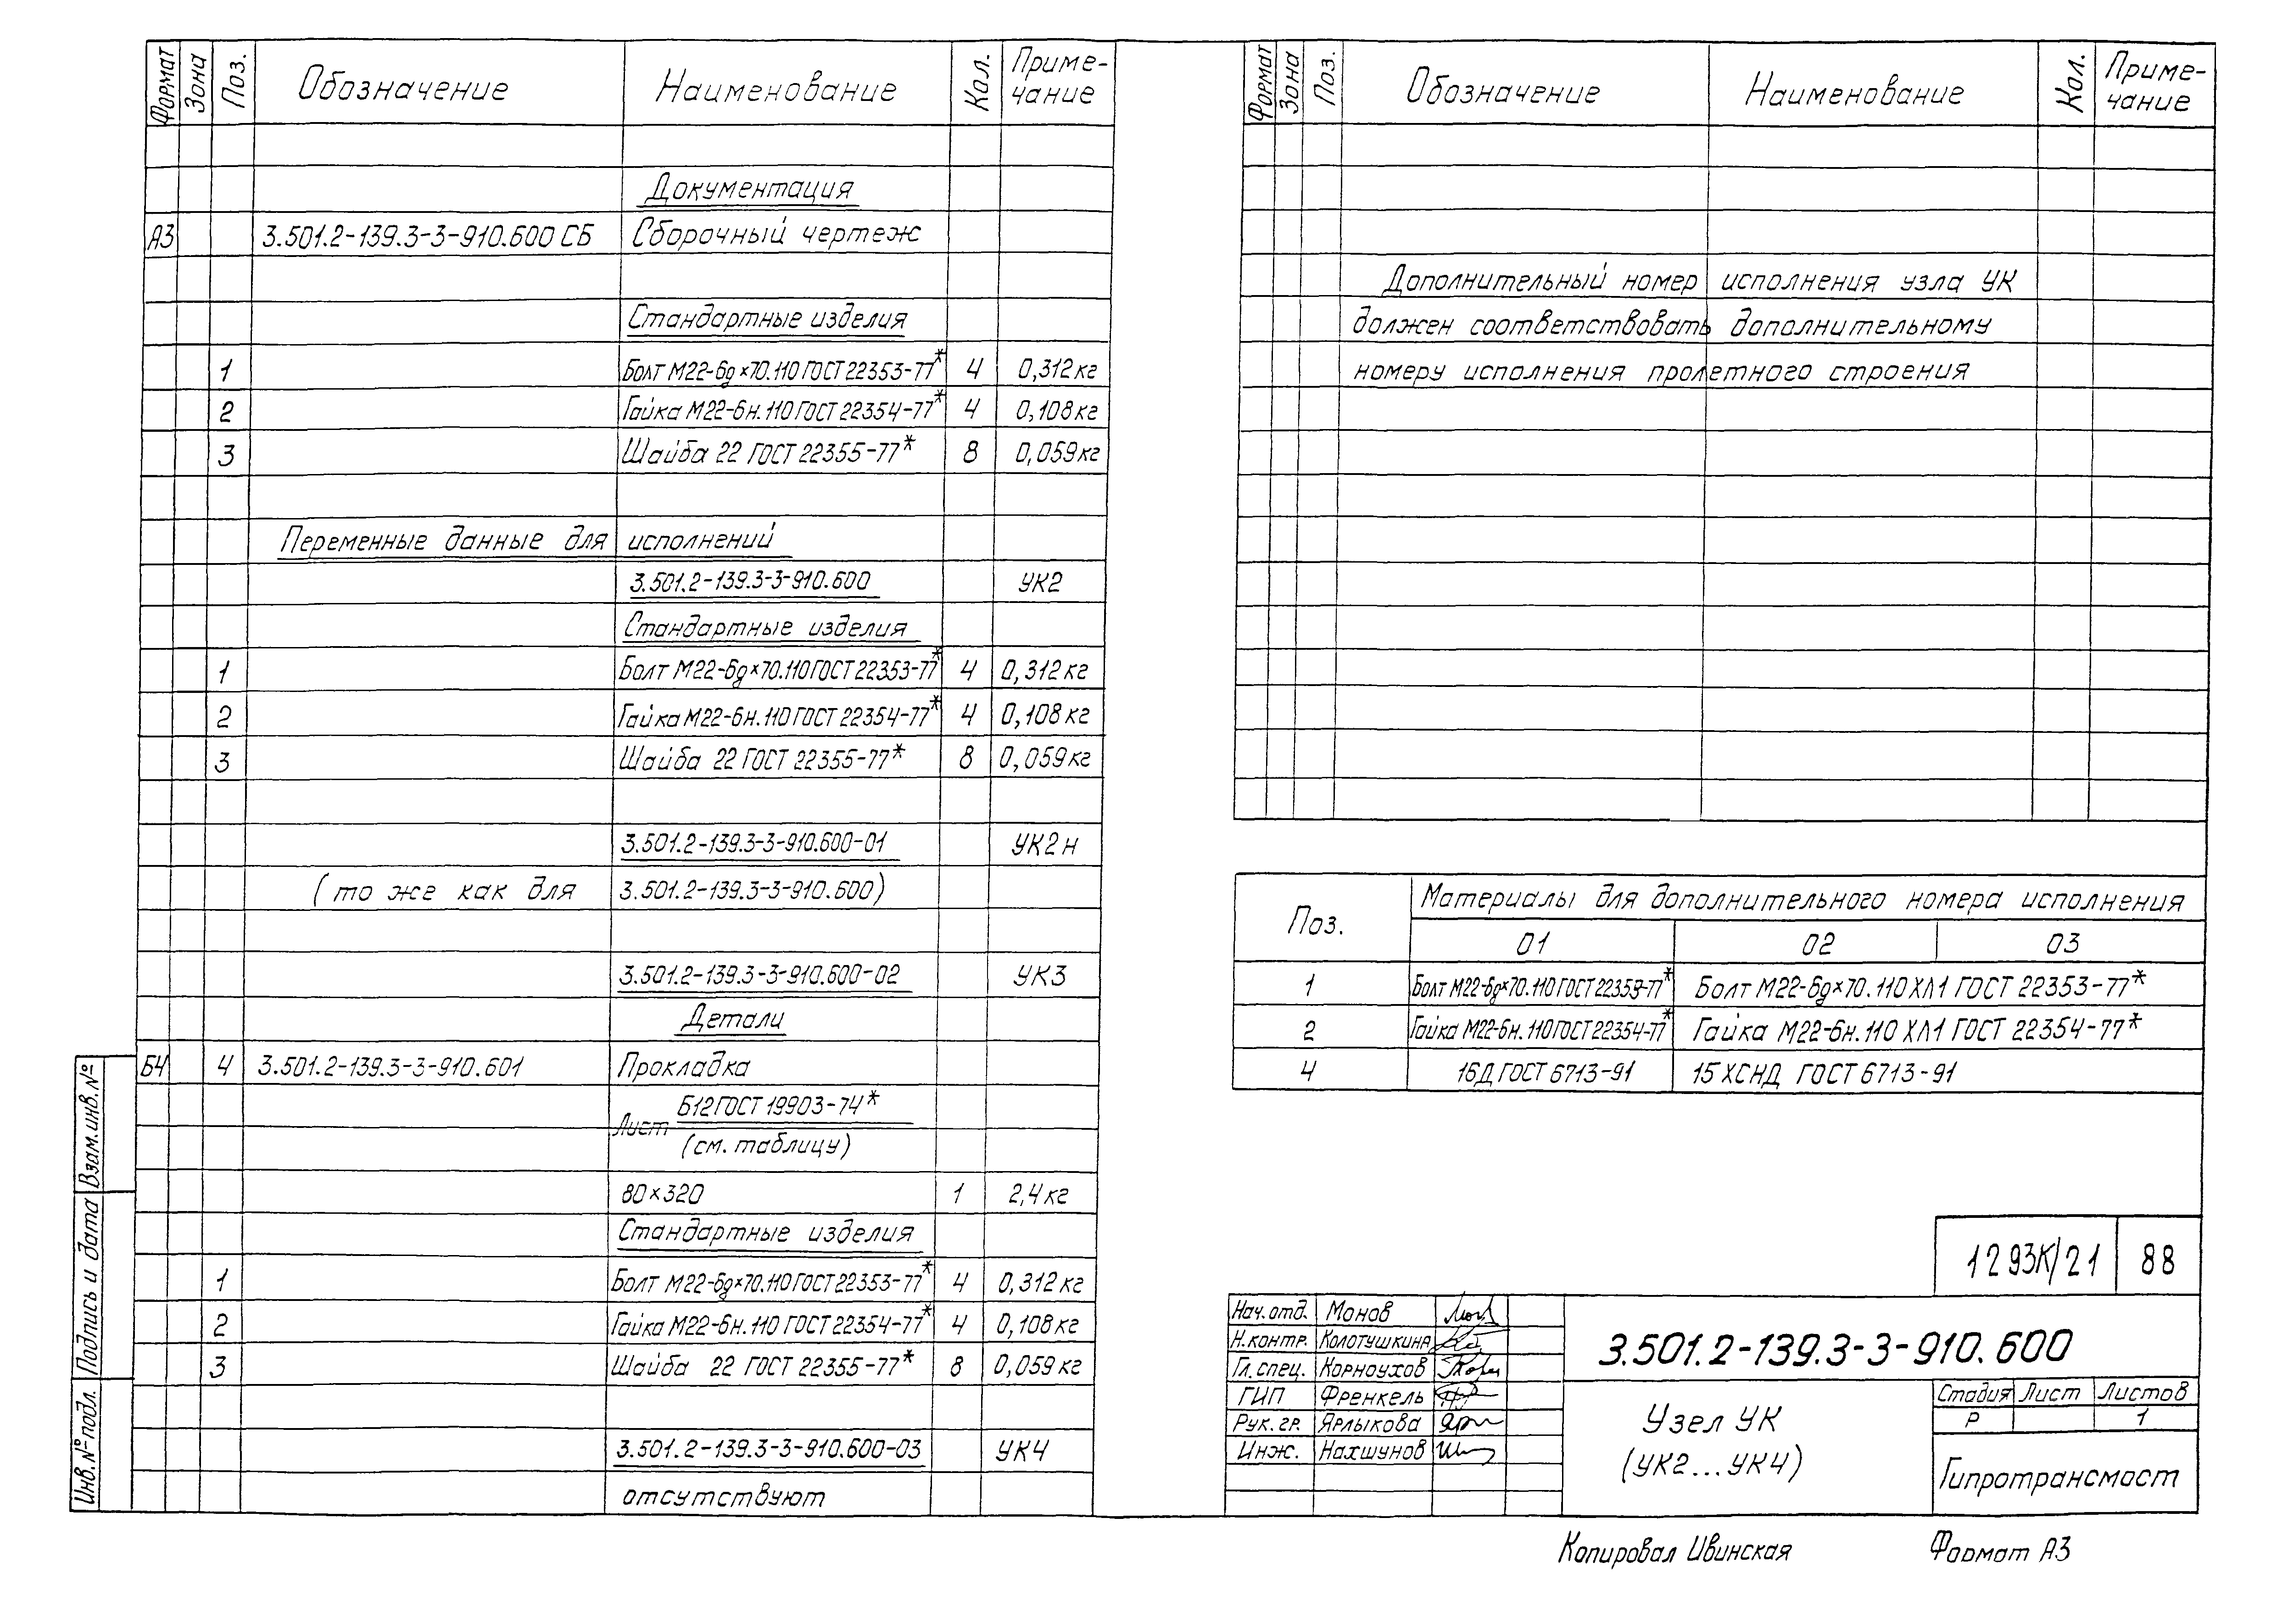 Формат Зона Поз. Обозначение Наименование Кол. Приме-
чание
Документация
А3 3.501.2-139.3-3-910.600 СБ Сборочный чертеж
Стандартные изделия
1 Болт М22-6g×70.110 ГОСТ 22353-77* 4 0,312 кг
2 Гайка М22-6н.110 ГОСТ 22354-77* 4 0,108 кг
3 Шайба 22 ГОСТ 22355-77* 8 0,059 кг
Переменные данные для исполнений
3.501.2-139.3-3-910.600 УК2
Стандартные изделия
1 Болт М22-6g×70.110 ГОСТ 22353-77* 4 0,312 кг
2 Гайка М22-6н.110 ГОСТ 22354-77* 4 0,108 кг
3 Шайба 22 ГОСТ 22355-77* 8 0,059 кг
3.501.2-139.3-3-910.600-01 УК2н
(то же как для 3.501.2-139.3-3-910.600)
3.501.2-139.3-3-910.600-02 УК3
Детали
Б4 4 3.501.2-139.3-3-910.601 Прокладка
Лист Б12 ГОСТ 19903-74*
(см. таблицу)
80×320 1 2,4 кг
Стандартные изделия
1 Болт М22-6g×70.110 ГОСТ 22353-77* 4 0,312 кг
2 Гайка М22-6н.110 ГОСТ 22354-77* 4 0,108 кг
3 Шайба 22 ГОСТ 22355-77* 8 0,059 кг
3.501.2-139.3-3-910.600-03 УК4
отсутствуют
Взам. инв. №
Подпись и дата
Инв. № подл.
Формат Зона Поз. Обозначение Наименование Кол. Приме-
чание
Дополнительный номер исполнения узла УК
должен соответствовать дополнительному
номеру исполнения пролетного строения
Поз. Материалы для дополнительного номера исполнения
01 02 03
1 Болт М22-6g×70.110 ГОСТ 22353-77* Болт М22-6g×70.110 ХЛ1 ГОСТ 22353-77*
2 Гайка М22-6н.110 ГОСТ 22354-77* Гайка М22-6н.110 ХЛ1 ГОСТ 22354-77*
4 16Д ГОСТ 6713-91 15 ХСНД ГОСТ 6713-91
1293К/21 88
Нач. отд. Монов
Н. контр. Колотушкина
Гл. спец. Корноухов
ГИП Френкель
Рук. гр. Ярлыкова
Инж. Нахшунов
3.501.2-139.3-3-910.600
Узел УК
(УК2...УК4)
Стадия Лист Листов
Р 1
Гипротрансмост
Копировал Ивинская Формат А3